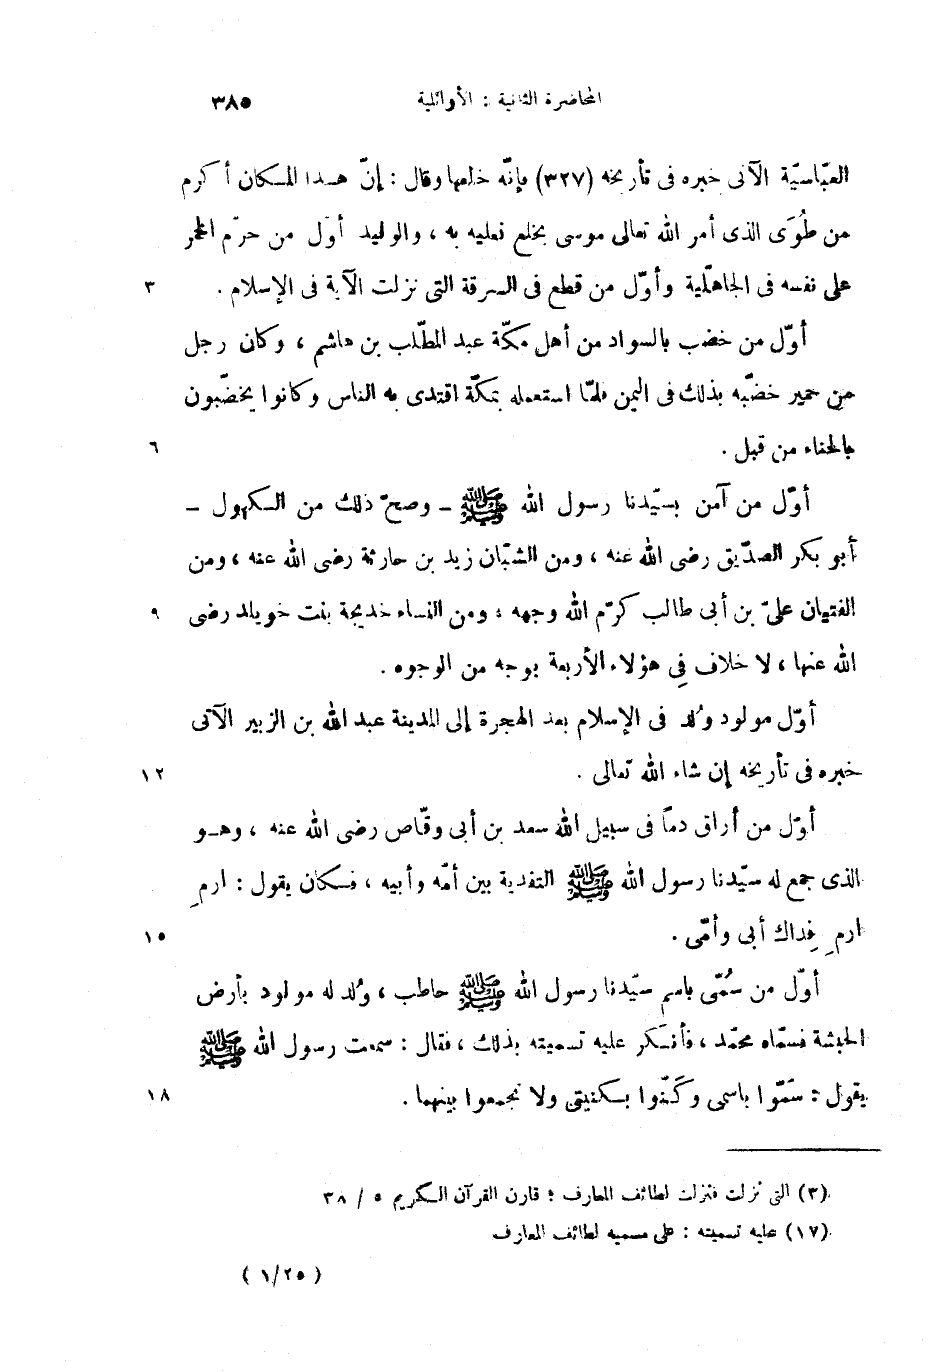 المحاضرة الثانية : الأوائلية ٣٨٥
العبّاسيّة الآتى خبره فى تأريخه (٣٢٧) بإنّه خلعها وقال : إنّ هــذا المـكان أكرم
من طُوَى الذى أمر الله تعالى موسى بخلع نعليه به ، والوليد أوّل من حرّم الخمر
على نفسه فى الجاهلّية وأوّل من قطع فى السرقة التى نزلت الآية فى الإسلام . ٣
أوّل من خضب بالسواد من أهل مكّة عبد المطّلب بن هاشم ، وكان رجل
من حمير خضّبه بذلك فى اليمن فلمّا استعمله بمكّة اقتدى به الناس وكانوا يخضّبون
بالحناء من قبل . ٦
أوّل من آمن بسيّدنا رسول الله ﷺ ـ وصحّ ذلك من الـكهول ـ
أبو بكر الصدّيق رضى الله عنه ، ومن الشبّان زيد بن حارثة رضى الله عنه ، ومن
الفتيان علىّ بن أبى طالب كرّم الله وجهه ، ومن النساء خديجة بنت خويلد رضى ٩
الله عنها ، لا خلاف فِى هؤلاء الأربعة بوجه من الوجوه .
أوّل مولود وُلد فى الإسلام بعد الهجرة إلى المدينة عبد الله بن الزبير الآتى
خبره فى تأريخه إن شاء الله تعالى . ١٢
أوّل من أراق دماً فى سبيل الله سعد بن أبى وقّاص رضى الله عنه ، وهــو
الذى جمع له سيّدنا رسول الله ﷺ التفدية بين أمّه وأبيه ، فـكان يقول : ارمِ
ارمِ فِداك أبى وأمّى . ١٥
أوّل من سُمّى باسم سيّدنا رسول الله ﷺ حاطب ، وُلد له مولود بأرض
الحبشة فسمّاه محمّد ، فأنـكر عليه تسميته بذلك ، فقال : سمعت رسول الله ﷺ
يقول : سَمّوا باسمى وكَنّوا بـكنيتى ولا تجمعوا بينهما . ١٨
(٣) التى نزلت فنزلت لطائف المعارف ؛ قارن القرآن الـكريم ٥ / ٣٨
(١٧) عليه تسميته : على مسميه لطائف المعارف
( ١/٢٥ )